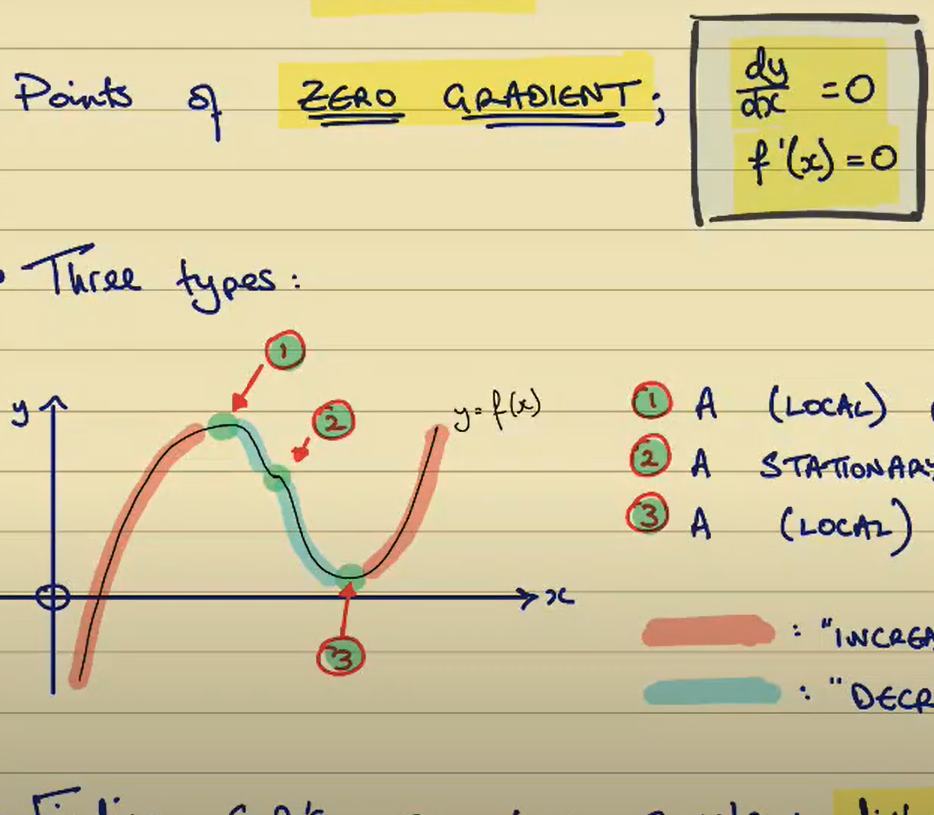 Points of ZERO GRADIENT;
dy/dx = 0
f'(x) = 0
Three types:
1
2
y
y=f(x)
1 A (LOCAL)
2 A STATIONARY
3 A (LOCAL)
O
x
3
: "INCREA
: " DECR